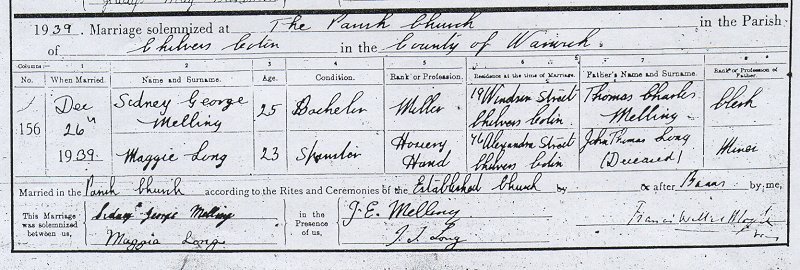 1939. Marriage solemnized at The Parish Church in the Parish
of Chilvers Coton in the County of Warwick.
Columns:— 1 2 3 4 5 6 7 8
No. When Married. Name and Surname. Age. Condition. Rank or Profession. Residence at the time of Marriage. Father's Name and Surname. Rank or Profession of Father.
156
Dec 26th 1939.
Sidney George Melling 25 Bachelor Miller 19 Windsor Street Chilvers Coton Thomas Charles Melling Clerk
Maggie Long 23 Spinster Hosiery Hand 46 Alexandra Street Chilvers Coton John Thomas Long (Deceased) Miner
Married in the Parish Church according to the Rites and Ceremonies of the Established Church by or after Banns by me,
This Marriage was solemnized between us, Sidney George Melling Maggie Long in the Presence of us, J. E. Melling J. T. Long